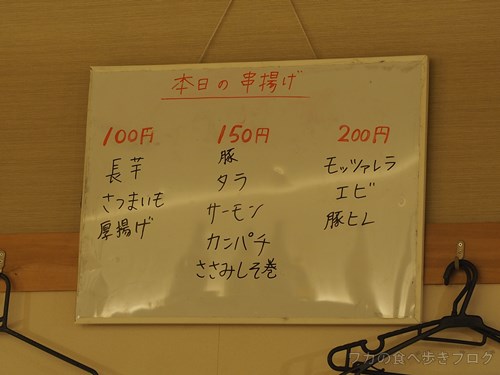 本日の串揚げ
100円
長芋
さつまいも
厚揚げ
150円
豚
タラ
サーモン
カンパチ
ささみしそ巻
200円
モッツァレラ
エビ
豚ヒレ
フカの食べ歩きブログ